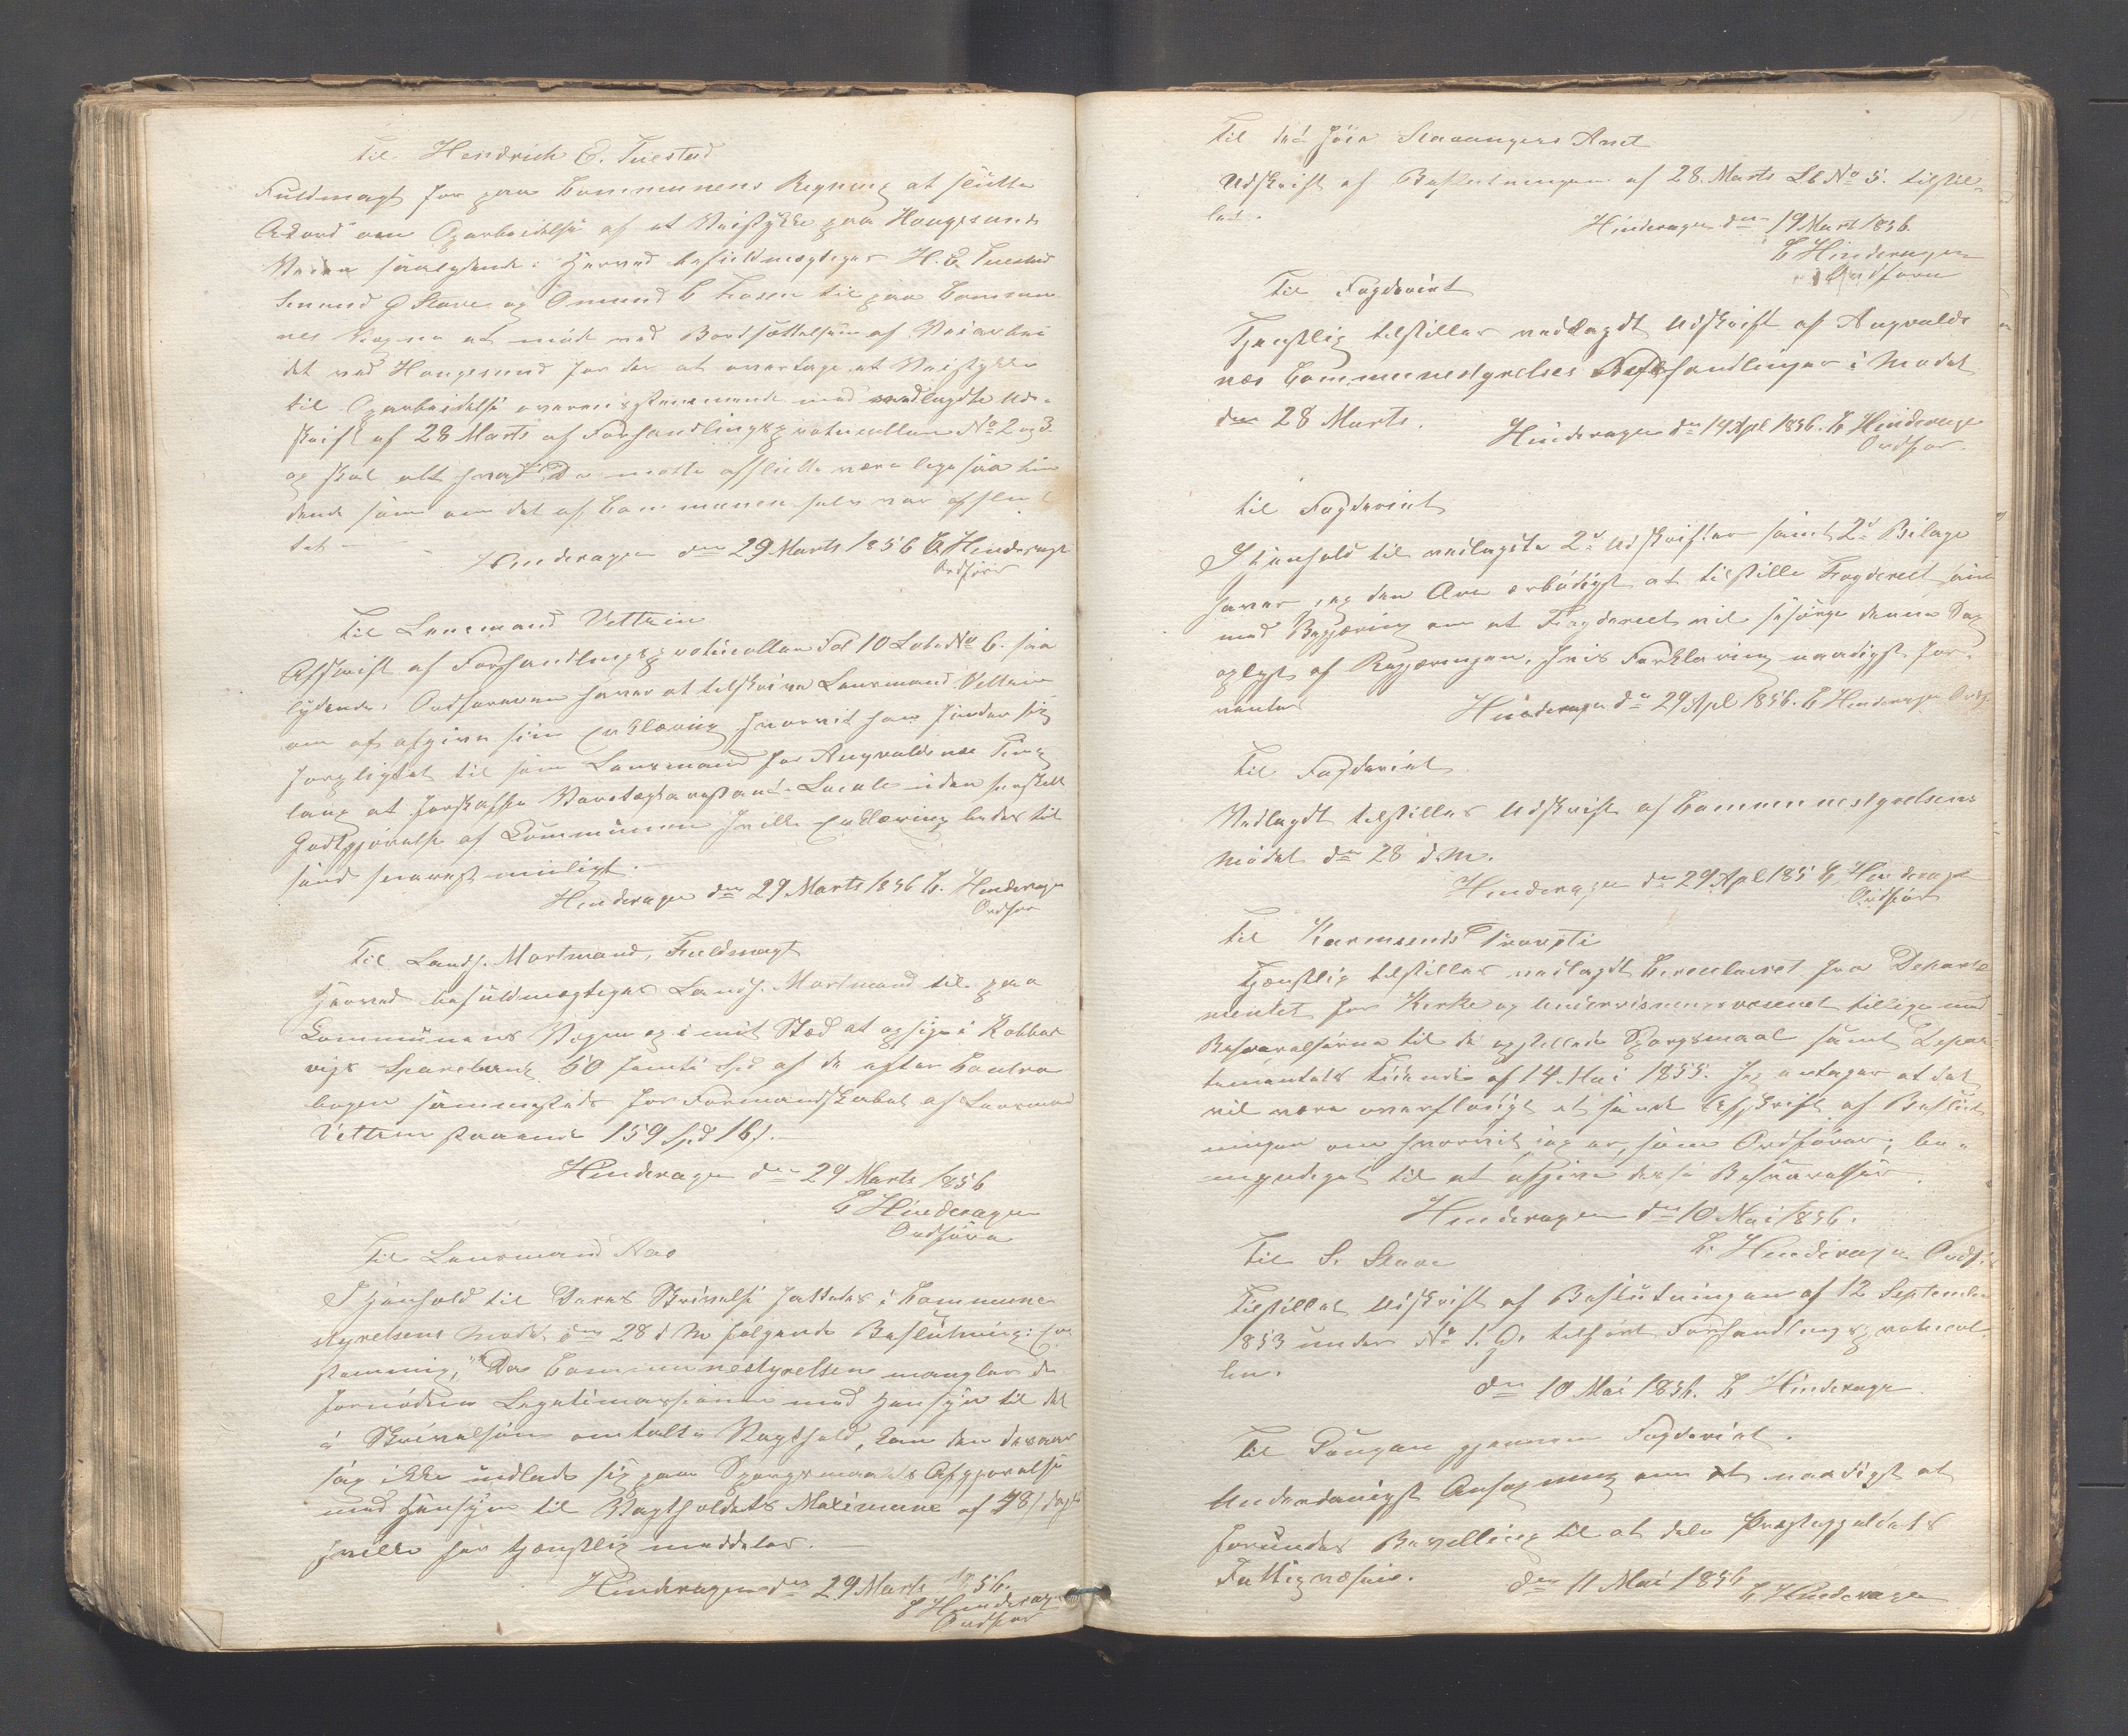 Til Hendrich E. Tuestad
Fuldmagt for paa Communens Regning at slutte
Akord om Oparbeidelse af et Veistykke paa Haugesunds
Veien saalydende: Herved befuldmægtiges H. E. Tuestad
G Stave og Omund E til paa Commu
nes Vegne at møde ved Bortsættelsen af Veiarbei
det ved Haugesund for der at overtage et Veistykke
til Oparbeidelse overensstemmende med vedlagdte Ud-
skrift af 28 Marts af Forhandlingsprotocollen No 2 og 3.
og skal alt hvad De maatte afslutte være ligesaa bin
dende som om det af Communen selv var afslu
tet
Hinderagen den 29 Marts 1856 E Hinderagen
Ordfører
Til Lensmand Vettrin
Afskrift af Forhandlingsprotocollen Fol 10 Løbe No 6. saa
lydende: Ordføreren haver at tilskrive Lensmand Vettrin
om at afgive sin Erklæring hvorvidt han finder sig
forpligtet til som Lensmand for Augvaldsnæs Ting
laug at forskaffe Varetægtsarrestant-Locale uden særskilt
Godtgjørelse af Communen hvilke Erklæring bedes til
sænd snarest muligt.
Hinderagen den 29 Marts 1856 E. Hinderagen
Ordfør
Til Landh. Mortmand, Fuldmagt
Herved befuldmægtiges Landh. Mortmand til paa
Communens Vegne og i mit Sted at opsige i Kobber
vigs Sparebank 50 femti Spd af de efter Contra
bogen sammesteds for Formandskabet af Lensmand
Vettrin staaende 159 Spd 16 s.
Hinderagen den 29 Marts 1856
E Hinderagen
Ordfører
Til Lensmand Aas
I Henhold til Deres Skrivelse fattedes i Commune
styrelsens Møde den 28 d M følgende Beslutning:
stemmig, "Da Communestyrelsen mangler de
fornødne Legitimassioner med Hensyn til det
i Skrivelsen omtalte Vagthold, kan den desaar
sag ikke indlade sig paa Spørgsmaalets Afgjørelse
med Hensyn til Vagtholdets Maximum af 48 s daglig
hvilke her tjenstlig meddeles.
Hinderagen den 29 Marts 1856.
E Hinderagen
Ordfør
Til det høie Stavangers Amt
Udskrift af Beslutningen af 28 Marts Lb No 5. tilstil-
let.
Hinderagen den 19 Mart 1856.
E Hinderagen
Ordfører
Til Fogderiet
Tjenstlig tilstilles vedlagdt Udskrift af Augvalds
næs Communestyrelses Forhandlinger i Mødet
den 28 Marts.
Hinderagen den 14 Apl 1856. E Hinderagen
Ordfør.
til Fogderiet
I Henhold til vedlagte 2de Udskrifter samt 2de Bilage
haver jeg den Ære ærbødigst at tilstille Fogderiet
med Begjæring om at Fogderiet vil besørge denne Sag
oplyst af Regjeringen, hvis Forklaring naadigst for-
ventes
Hinderagen den 29 Apl 1856. E Hinderagen Ordf
Til Fogderiet
Vedlagdt tilstilles Udskrift af Communestyrelsens
Mødet den 28 d.M.
Hinderagen den 29 Apl 185 E Hinderagen
Ordfør
Til Karmsunds Provsti
Tjenstlig tilstilles vedlagdt Circulairet fra Departe
mentet for Kirke og Undervisningsvæsenet tillige med
Besvarelserne til de opstillede Spørgsmaal samt Depar
tementets Tidende af 14 Mai 1855. Jeg antager at det
vil være overflødigt at sænde Afskrift af Beslut
ningen om hvorvit jeg er, som Ordfører, be-
myndiget til at afgive disse Besvarelser.
Hinderagen den 10 Mai 1856.
E. Hinderagen Ordf.
Til S. Stave
Tilstilles Udskrift af Beslutningen af 12 September
1853 under No 1. tilført Forhandlingsprotocol
len.
den 10 Mai 1856. E Hinderage
Til Kongen gjennem Fogderiet.
Underdanigst Ansøgning om at naadigst at
forundes Bevilling til at dele Præstegjeldets
Fattigvæsen.
den 11 Mai 1856 E Hinderage